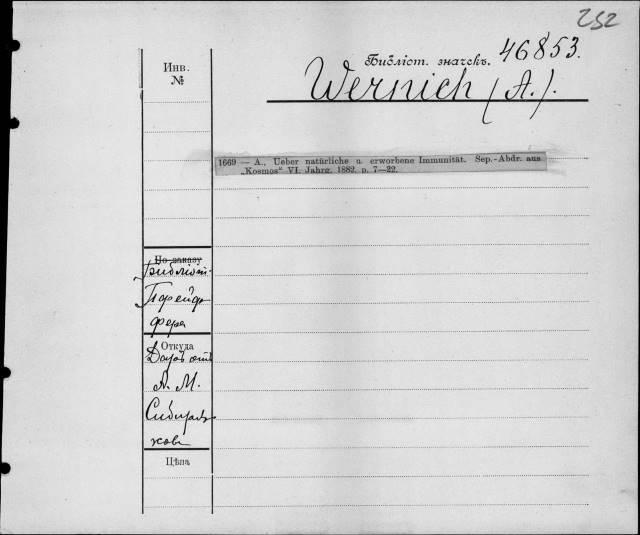 252
Библіот. значекъ. 46853.
Wernich (A.).
Инв.
№
1669 — A., Ueber natürliche u. erworbene Immunität. Sep.-Abdr. aus
„Kosmos“ VI. Jahrg. 1882. p. 7—22.
По заказу
Библіот.
Пфейф
фера
Откуда
Даръ отъ
А. М.
Сибиря
кова
Цѣна